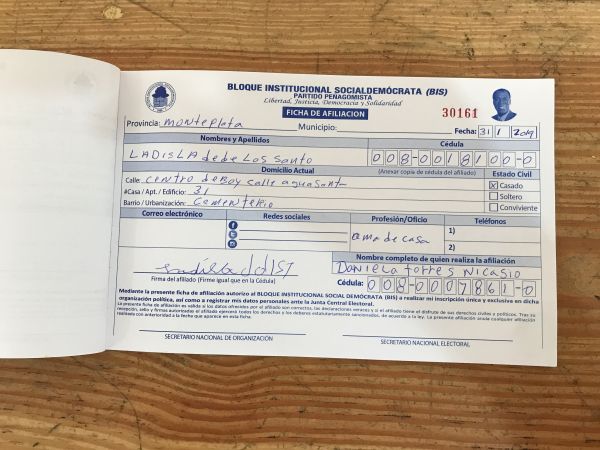 BLOQUE INSTITUCIONAL SOCIALDEMÓCRATA (BIS)
PARTIDO PEÑAGOMISTA
Libertad, Justicia, Democracia y Solidaridad
FICHA DE AFILIACION
30161
Provincia: monteplata Municipio: Fecha: 31 1 2019
Nombres y Apellidos Cédula
LADISLA de de Los Santo 008-0018100-0
Domicilio Actual (Anexar copia de cédula del afiliado) Estado Civil
Calle: centro de Boy calle agua Sant
#Casa / Apt. / Edificio: 31
Barrio / Urbanización: Cementerio
X Casado
Soltero
Conviviente
Correo electrónico Redes sociales Profesión/Oficio Teléfonos
ama de casa
1)
2)
Nombre completo de quien realiza la afiliación
DANIELA torres NICASIO
Firma del afiliado (Firme igual que en la Cédula)
Cédula: 008-0007861-0
Mediante la presente ficha de afiliación autorizo al BLOQUE INSTITUCIONAL SOCIAL DEMÓCRATA (BIS) a realizar mi inscripción única y exclusiva en dicha
organización política, así como a registrar mis datos personales ante la Junta Central Electoral.
La presente ficha de afiliación es válida si los datos ofrecidos por el afiliado son correctos, las declaraciones veraces y si el afiliado tiene el disfrute de sus derechos civiles y políticos. Tras su
recepción, sello y firmas autorizadas el afiliado ejercerá todos los derechos y los deberes estatutariamente sancionados, de acuerdo a la ley. La presente afiliación anula cualquier afiliación
realizada con anterioridad a la fecha que aparece en esta ficha.
SECRETARIO NACIONAL DE ORGANIZACIÓN
SECRETARIO NACIONAL ELECTORAL